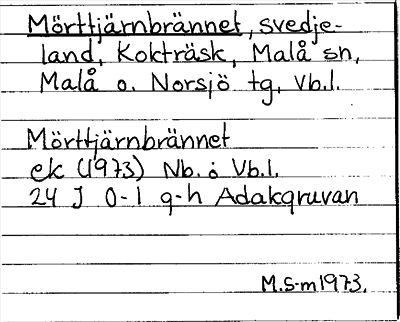 Mörttjärnbrännet, svedje-
land, Kokträsk, Malå sn,
Malå o. Norsjö tg, Vb.l.
Mörttjärnbrännet
ek (1973) Nb. o Vb.l.
24 J 0-1 g-h Adakgruvan
M.S-m 1973.